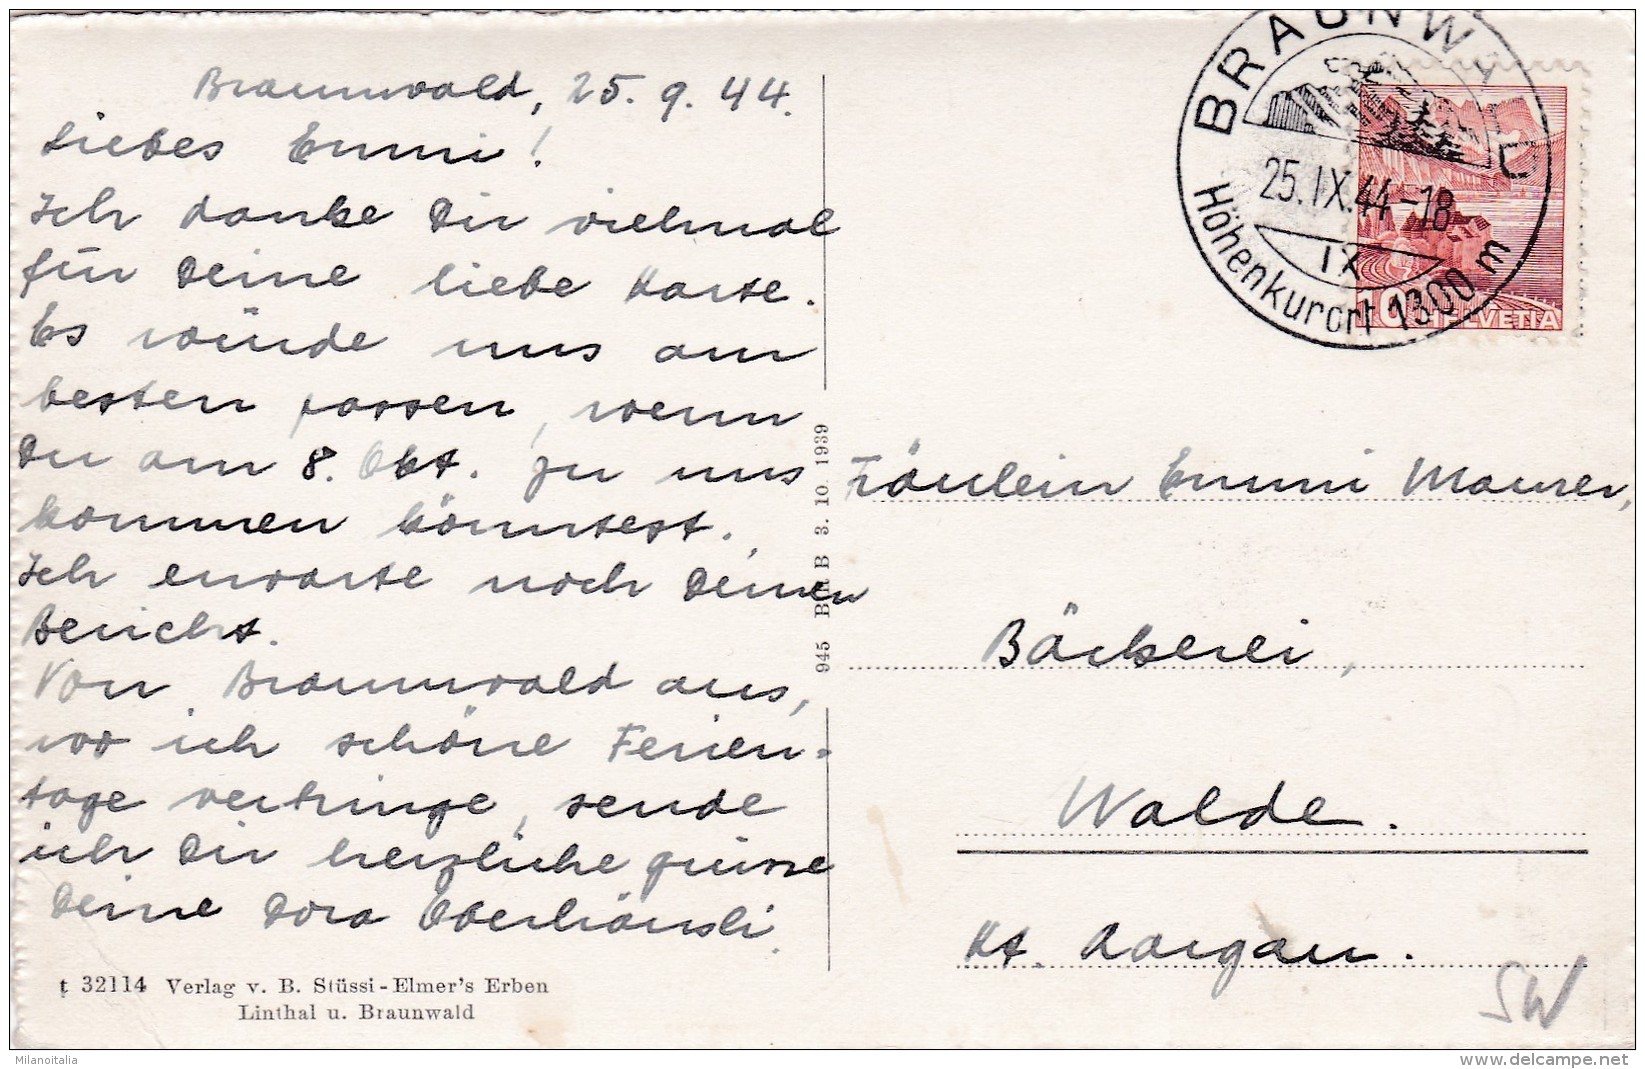 Braunwald, 25. 9. 44.
Liebes Emmi!
Ich danke Dir vielmal
für Deine liebe Karte.
Es würde uns am
besten passen, wenn
Du am 8. Okt. zu uns
kommen könntest.
Ich erwarte noch Deinen
Bericht.
Von Braunwald aus,
wo ich schöne Ferien-
tage verbringe, sende
ich Dir herzliche grüsse
Deine Dora Oberhänsli.
t 32114 Verlag v. B. Stüssi-Elmer's Erben
Linthal u. Braunwald
945 B R B 3. 10. 1939
BRAUNWALD
25.IX.44-18
IX
Höhenkurort 1300 m
10 HELVETIA
Fräulein Emmi Maurer,
Bäckerei,
Walde.
Kt. Aargau.
SW
Milanoitalia
www.delcampe.net